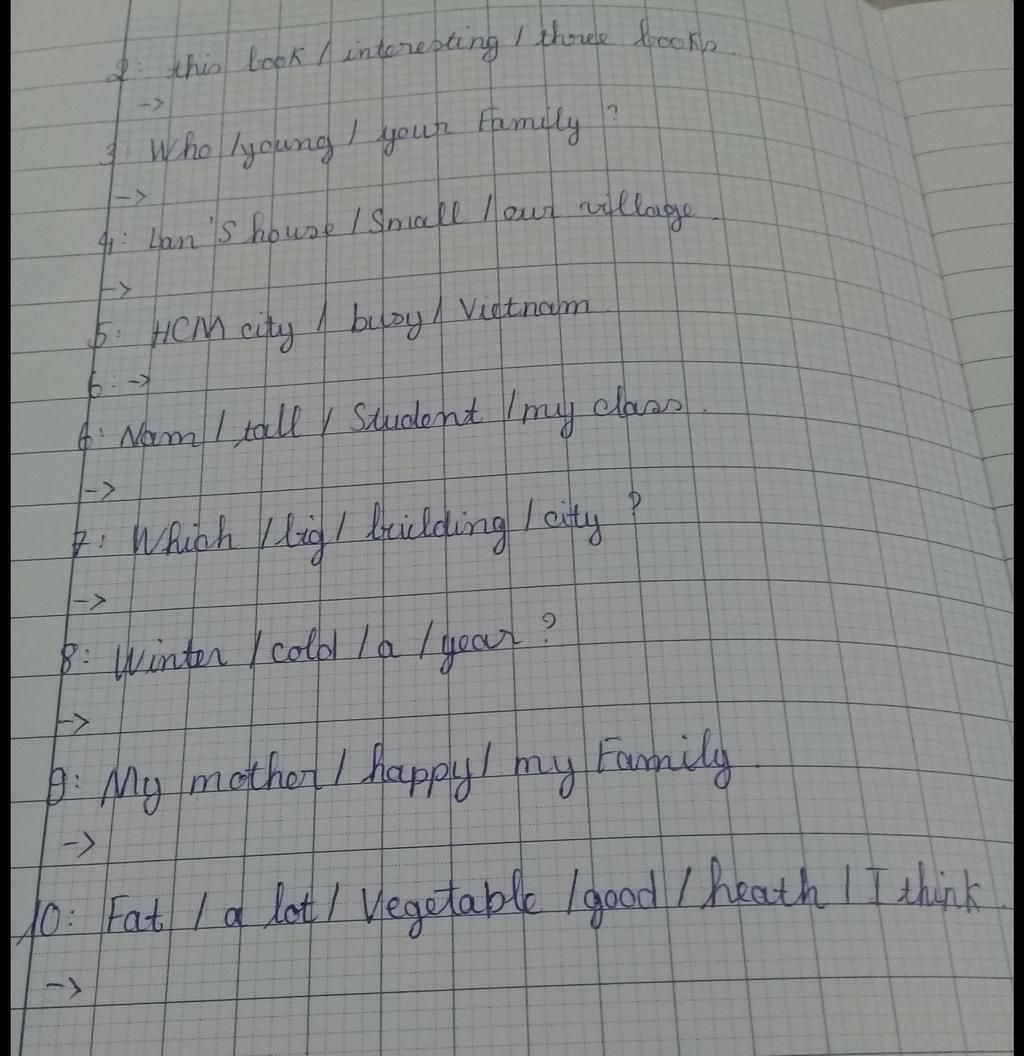 2: this book / interesting / three books.
->
3: Who / young / your Family ?
->
4: Lan's house / Small / our village.
->
5: HCM city / busy / Vietnam
6: ->
6: Nam / tall / Student / my class.
->
7: Which / big / building / city ?
->
8: Winter / cold / a / year ?
->
9: My mother / happy / my Family.
->
10: Eat / a lot / Vegetable / good / heath / I think.
->